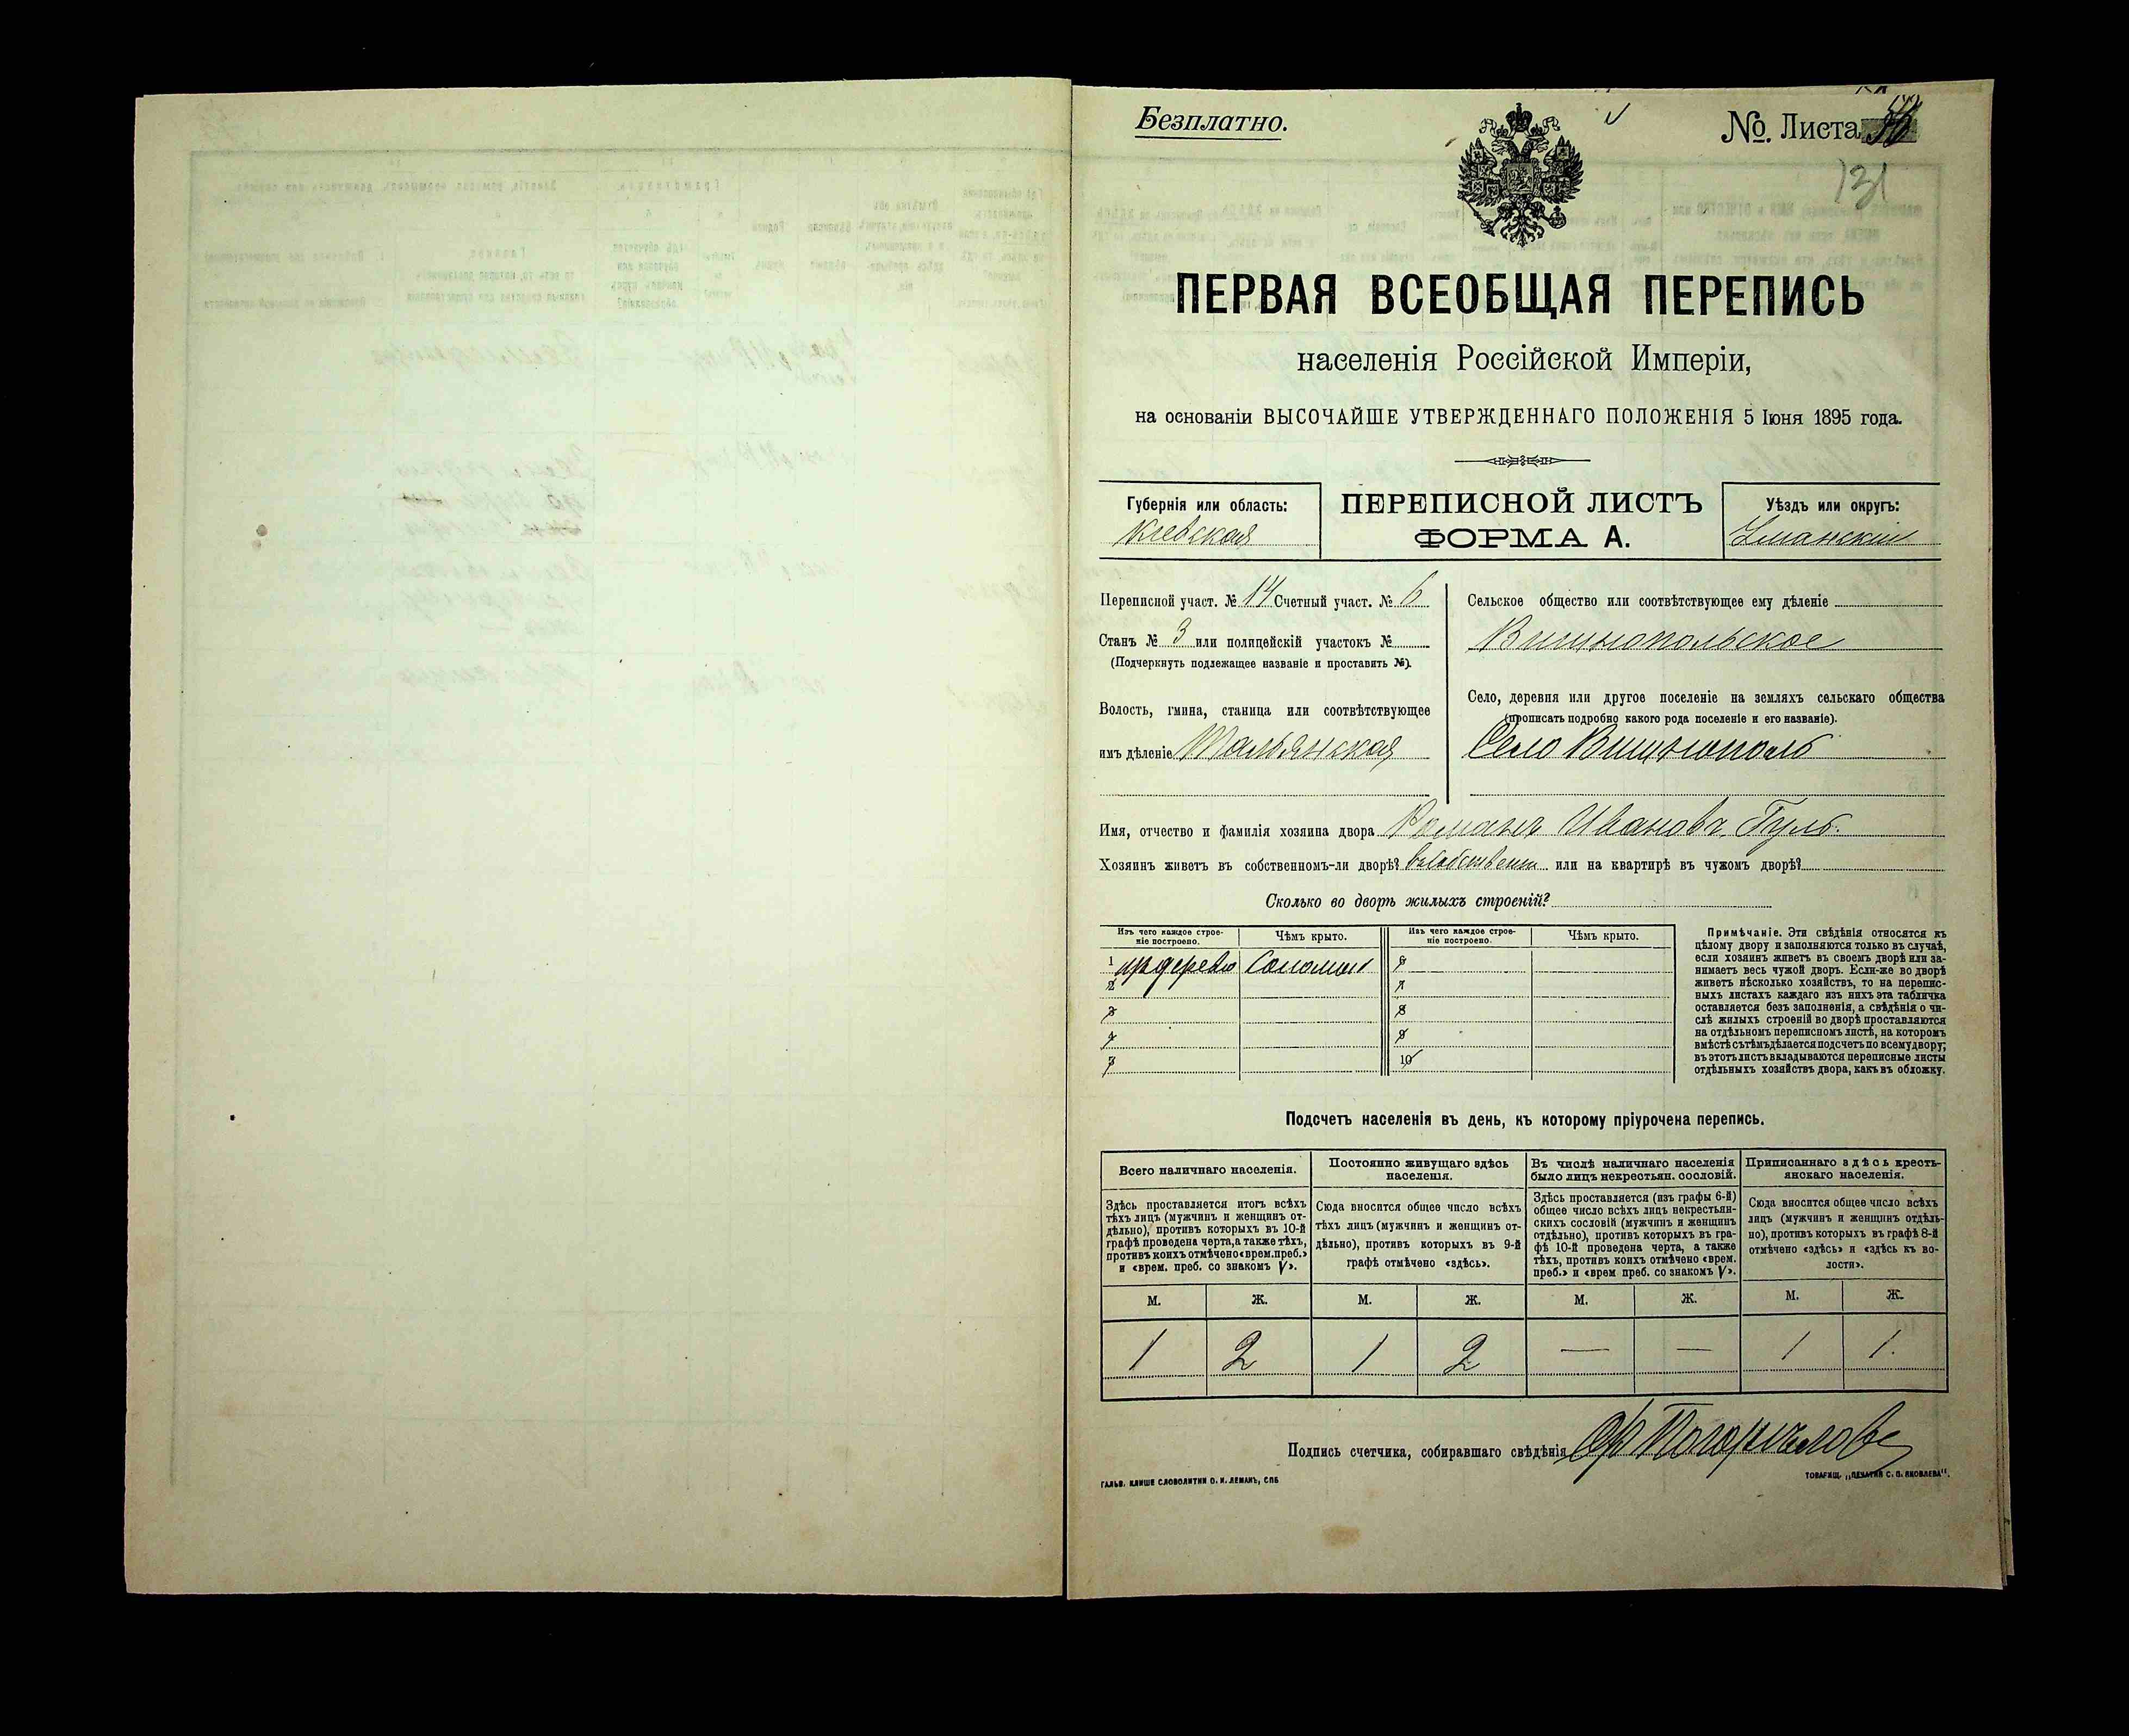 Безплатно.
№ Листа
131
ПЕРВАЯ ВСЕОБЩАЯ ПЕРЕПИСЬ
населенія Россійской Имперіи,
на основаніи ВЫСОЧАЙШЕ УТВЕРЖДЕННАГО ПОЛОЖЕНІЯ 5 Іюня 1895 года.
Губернія или область:
Кіевская
ПЕРЕПИСНОЙ ЛИСТЪ
ФОРМА А.
Уѣздъ или округъ:
Уманскій
Переписной участ. № 14 Счетный участ. № 6
Станъ № 3 или полицейскій участокъ №
(Подчеркнуть подлежащее названіе и проставить №).
Волость, гмина, станица или соотвѣтствующее
имъ дѣленіе Тальянская
Сельское общество или соотвѣтствующее ему дѣленіе
Вишнопольское
Село, деревня или другое поселеніе на земляхъ сельскаго общества
(прописать подробно какого рода поселеніе и его названіе).
Село Вишнополь
Имя, отчество и фамилія хозяина двора Романъ Ивановъ Гуль.
Хозяинъ живетъ въ собственномъ-ли дворѣ? или на квартирѣ въ чужомъ дворѣ?
Сколько во дворѣ жилыхъ строеній?
Изъ чего каждое строе-
ніе построено.
Чѣмъ крыто.
Изъ чего каждое строе-
ніе построено.
Чѣмъ крыто.
1 Соломы 6
2 7
3 8
4 9
5 10
Примѣчаніе. Эти свѣдѣнія относятся къ
цѣлому двору и заполняются только въ случаѣ,
если хозяинъ живетъ въ своемъ дворѣ или за-
нимаетъ весь чужой дворъ. Если-же во дворѣ
живетъ нѣсколько хозяйствъ, то на перепис-
ныхъ листахъ каждаго изъ нихъ эта табличка
оставляется безъ заполненія, а свѣдѣнія о чи-
слѣ жилыхъ строеній во дворѣ проставляются
на отдѣльномъ переписномъ листѣ, на которомъ
вмѣстѣ съ тѣмъ дѣлается подсчетъ по всему двору;
въ этотъ листъ вкладываются переписные листы
отдѣльныхъ хозяйствъ двора, какъ въ обложку.
Подсчетъ населенія въ день, къ которому пріурочена перепись.
Всего наличнаго населенія.
Здѣсь проставляется итогъ всѣхъ
тѣхъ лицъ (мужчинъ и женщинъ от-
дѣльно), противъ которыхъ въ 10-й
графѣ проведена черта, а также тѣхъ,
противъ коихъ отмѣчено «врем. преб.»
и «врем. преб. со знакомъ V».
Постоянно живущаго здѣсь
населенія.
Сюда вносится общее число всѣхъ
тѣхъ лицъ (мужчинъ и женщинъ от-
дѣльно), противъ которыхъ въ 9-й
графѣ отмѣчено «здѣсь».
Въ числѣ наличнаго населенія
было лицъ некрестьян. сословій.
Здѣсь проставляется (изъ графы 6-й)
общее число всѣхъ лицъ некрестьян-
скихъ сословій (мужчинъ и женщинъ
отдѣльно), противъ которыхъ въ гра-
фѣ 10-й проведена черта, а также
тѣхъ, противъ коихъ отмѣчено «врем.
преб.» и «врем преб. со знакомъ V».
Приписаннаго здѣсь кресть-
янскаго населенія.
Сюда вносится общее число всѣхъ
лицъ (мужчинъ и женщинъ отдѣль-
но), противъ которыхъ въ графѣ 8-й
отмѣчено «здѣсь» и «здѣсь къ во-
лости».
М. Ж. М. Ж. М. Ж. М. Ж.
1 2 1 2 — — 1 1.
Подпись счетчика, собиравшаго свѣдѣнія
ГАЛЬВ. КЛИШЕ СЛОВОЛИТНИ О. И. ЛЕМАНЪ, СПБ
ТОВАРИЩ. „ПЕЧАТНЯ С. П. ЯКОВЛЕВА".